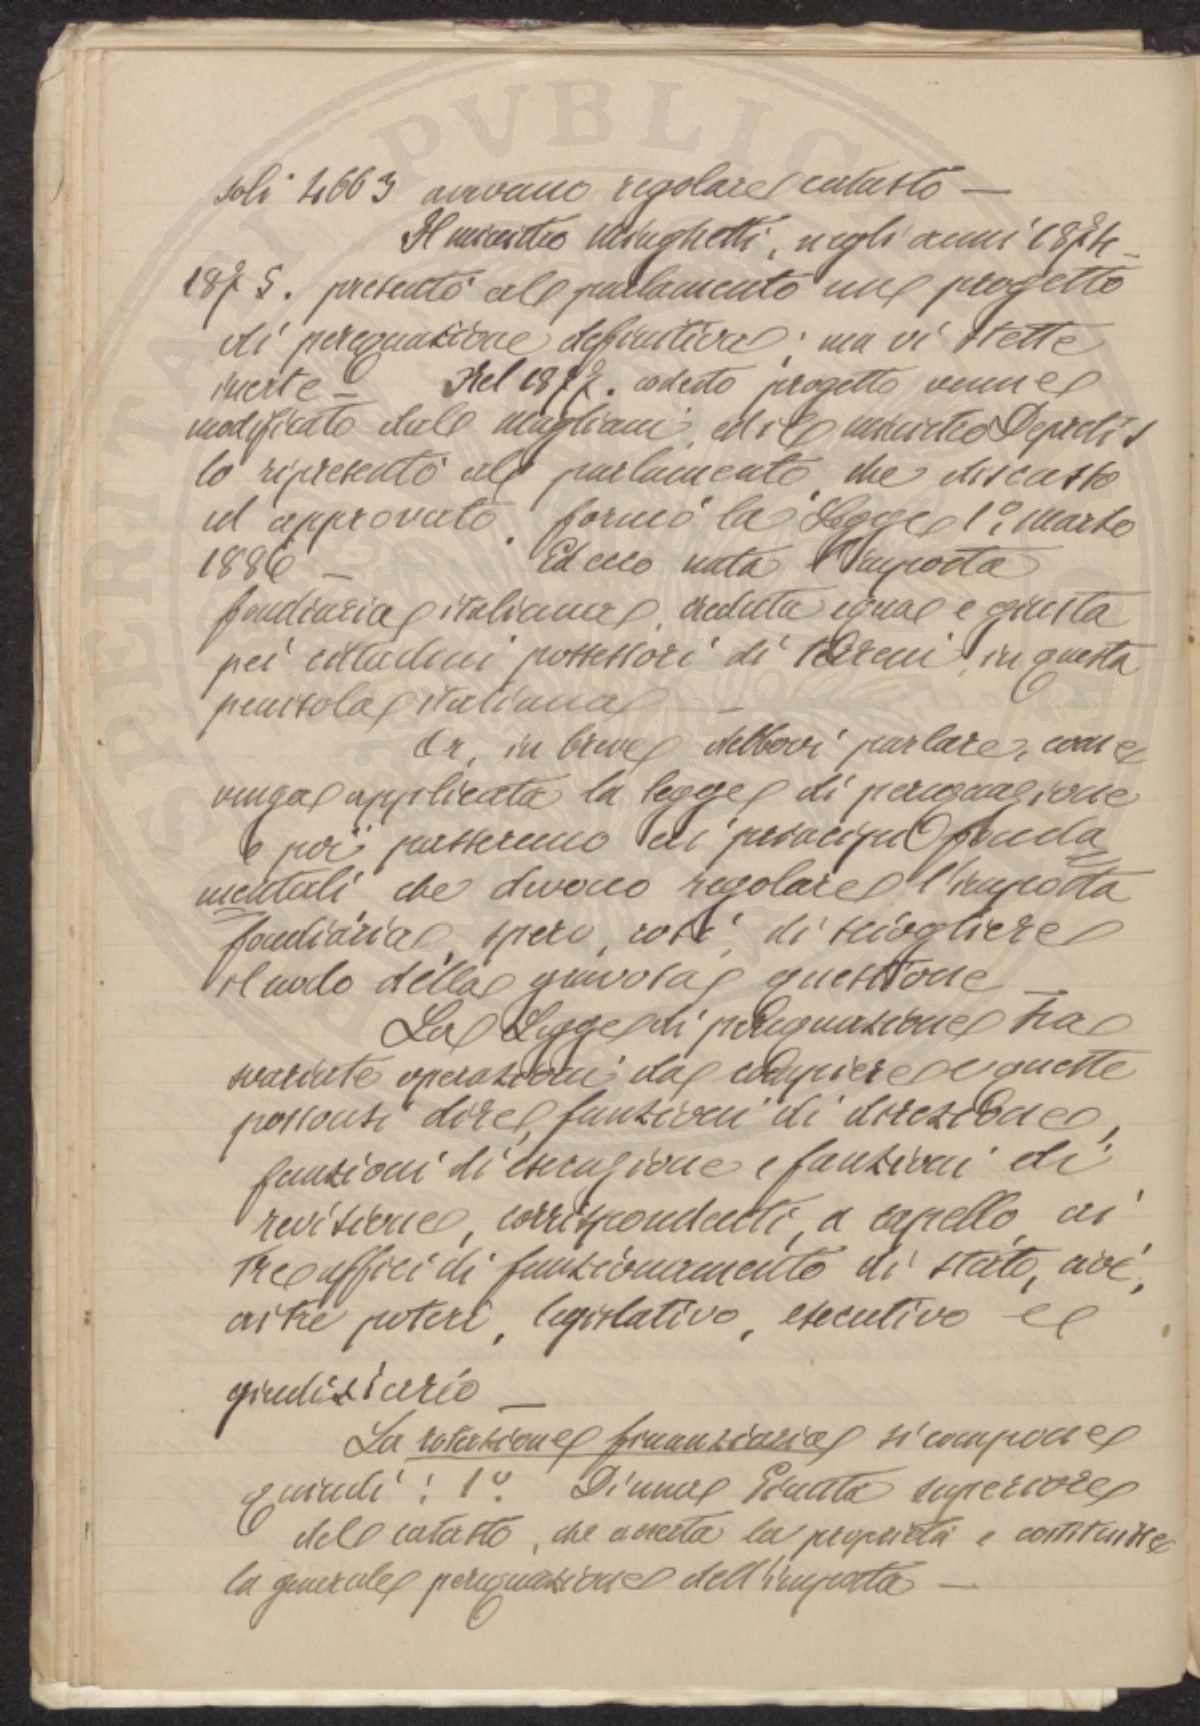 soli 4663 avevano regolare catasto —
Il ministro Minghetti, negli anni 1874-
1875. presentò al parlamento un progetto
di perequazione definitiva; ma vi stette
inerte — Nel 1877. codesto progetto venne
modificato dal Magliani, ed il ministro Depretis
lo ripresentò al parlamento, che discusso
ed approvato, formò la Legge 1° Marzo
1886 — Ed ecco nata l'imposta
fondiaria italiana, creduta egual e giusta
pei cittadini possessori di terreni, in questa
penisola italiana —
Or, in breve debbovi parlare, come
venga applicata la legge di perequazione
e poi passeremo ai principii fonda
mentali che devono regolare l'imposta
fondiaria, spero, così, di sciogliere
il nodo della gravosa questione —
La Legge di perequazione ha
svariate operazioni da compiere e queste
possonsi dire, funzioni di direzione,
funzioni di esecuzione e funzioni di
revisione, corrispondenti, a capello, ai
tre uffici di funzionamento di stato, cioè,
ai tre poteri, legislativo, esecutivo e
giudiziario —
La rotazione finanziaria si compone
quindi: 1°. Di una Giunta superiore
del catasto, che accerta la proprietà e costituisce
la generale perequazione dell'imposta —